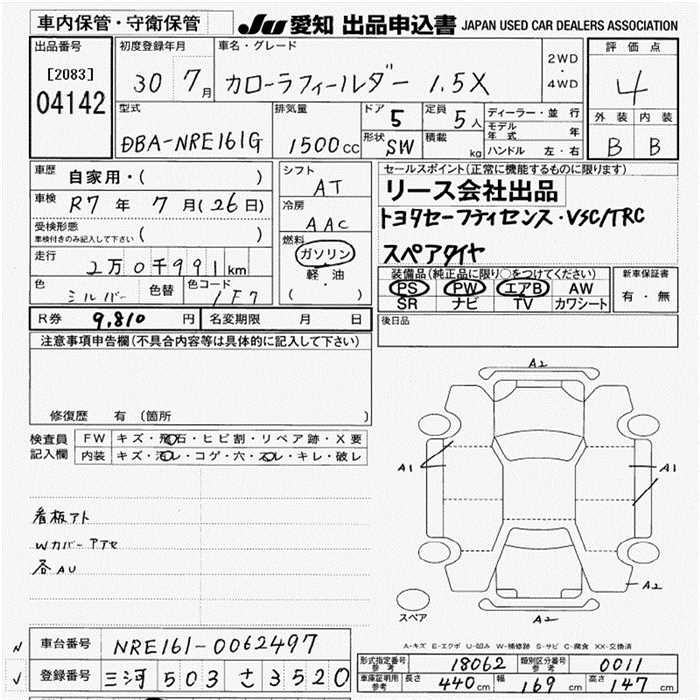 車内保管・守衛保管 JU 愛知 出品申込書 JAPAN USED CAR DEALERS ASSOCIATION
出品番号 初度登録年月 車名・グレード 評価点
[2083] 30 7月 カローラフィールダー 1.5X 2WD・4WD 4
04142
型式 排気量 ドア 5 定員 5人 ディーラー・並行 外装 内装
DBA-NRE161G 1500cc 形状 SW 積載 kg モデル年式 年 B B
ハンドル 左・右
車歴 自家用・( ) シフト AT セールスポイント(正常に機能するものに限ります)
車検 R7年 7月(26日) 冷房 AAC リース会社出品
受検形態 ( ) トヨタセーフティセンス・VSC/TRC
車検付きのみ記入して下さい 燃料 ガソリン スペアタイヤ
走行 2万0千991km 軽・油
( ) 装備品(純正品に限り○をつけてください) 新車保証書
色 シルバー 色替 色コード 1F7 PS PW エアB AW 有・無
SR ナビ TV カワシート
R券 9,810円 名変期限 月 日 後日品
注意事項申告欄(不具合内容等は具体的に記入して下さい)
修復歴 有 (箇所 )
検査員記入欄 FW キズ・飛石・ヒビ割・リペア跡・X要
内装 キズ・汚レ・コゲ・穴・スレ・キレ・破レ
看板アト
Wカバーアアセ
各AU
A2
A1 A1
A2
A2
スペア
A-キズ E-エクボ U-凹み W-補修跡 S-サビ C-腐食 XX-交換済
車台番号 NRE161-0062497
形式指定番号 参考 18062 類別区分番号 参考 0011
登録番号 三河 503 さ 3520
車庫証明用 参考 長さ 440cm 幅 169cm 高さ 147cm